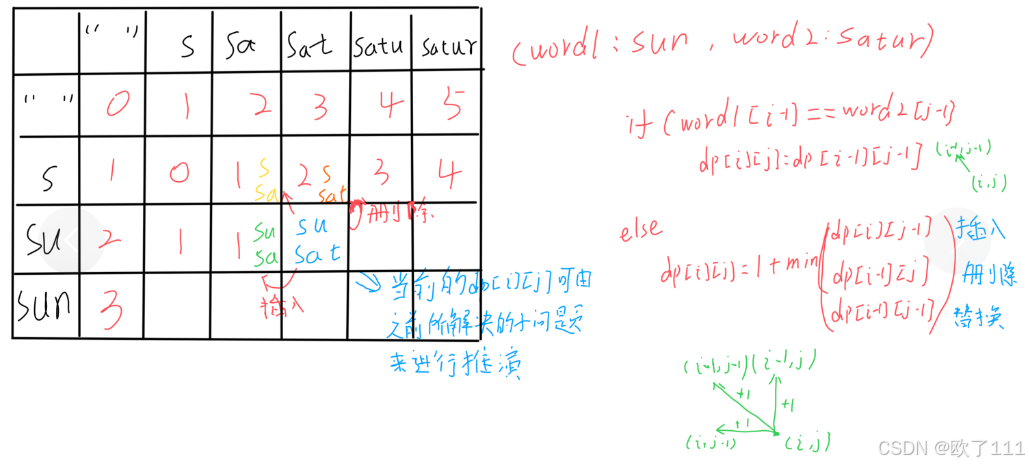 “ ” s sa sat satu satur
“ ” 0 1 2 3 4 5
s 1 0 1 s sa 2 s sat 3 4
su 2 1 1 su sa su sat 删除
sun 3 插入
当前的dp[i][j]可由
之前所解决的子问题
来进行推演
(word1:sun, word2:satur)
if (word1[i-1]==word2[j-1]
dp[i][j]=dp[i-1][j-1]
(i-1,j-1)
(i,j)
else
dp[i][j]=1+min(dp[i][j-1] 插入
dp[i-1][j] 删除
dp[i-1][j-1]) 替换
(i-1,j-1) (i-1,j)
+1
+1
+1
(i,j-1) (i,j)
CSDN @欧了111